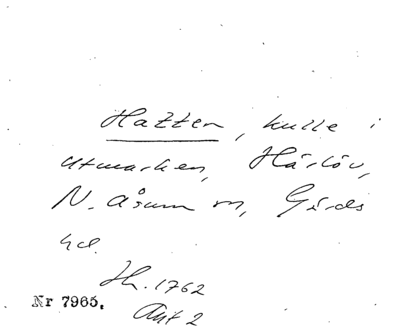 Hatten, kulle i
utmarken, Härlöv,
N. Åsum sn, Gärds
hd.
Hh. 1762
Akt 2
Nr 7965.